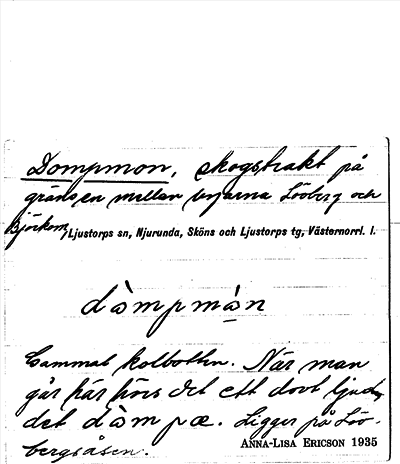 Dompmon, skogstrakt på
gränsen mellan byarna Lööberg och
Björkom, Ljustorps sn, Njurunda, Sköns och Ljustorps tg, Västernorrl. l.
dòmpmòn
Gammal kolbotten. När man
går här hörs det ett dovt ljud,
det dòmpæ. Ligger på Löö-
bergsåsen. ANNA-LISA ERICSON 1935